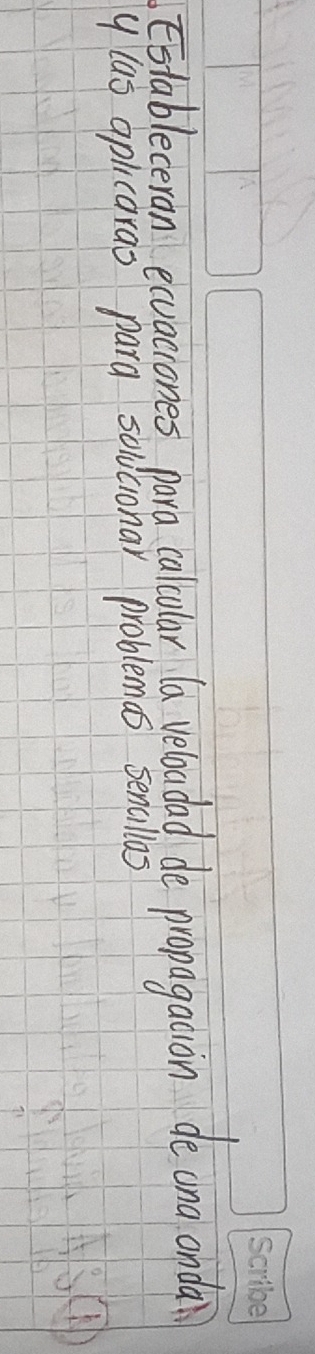 Scribe
M
A
Estableceran ecuaciones para calcular la velocidad de propagación de una onda
y las aplicaras para solucionar problemas sencillas